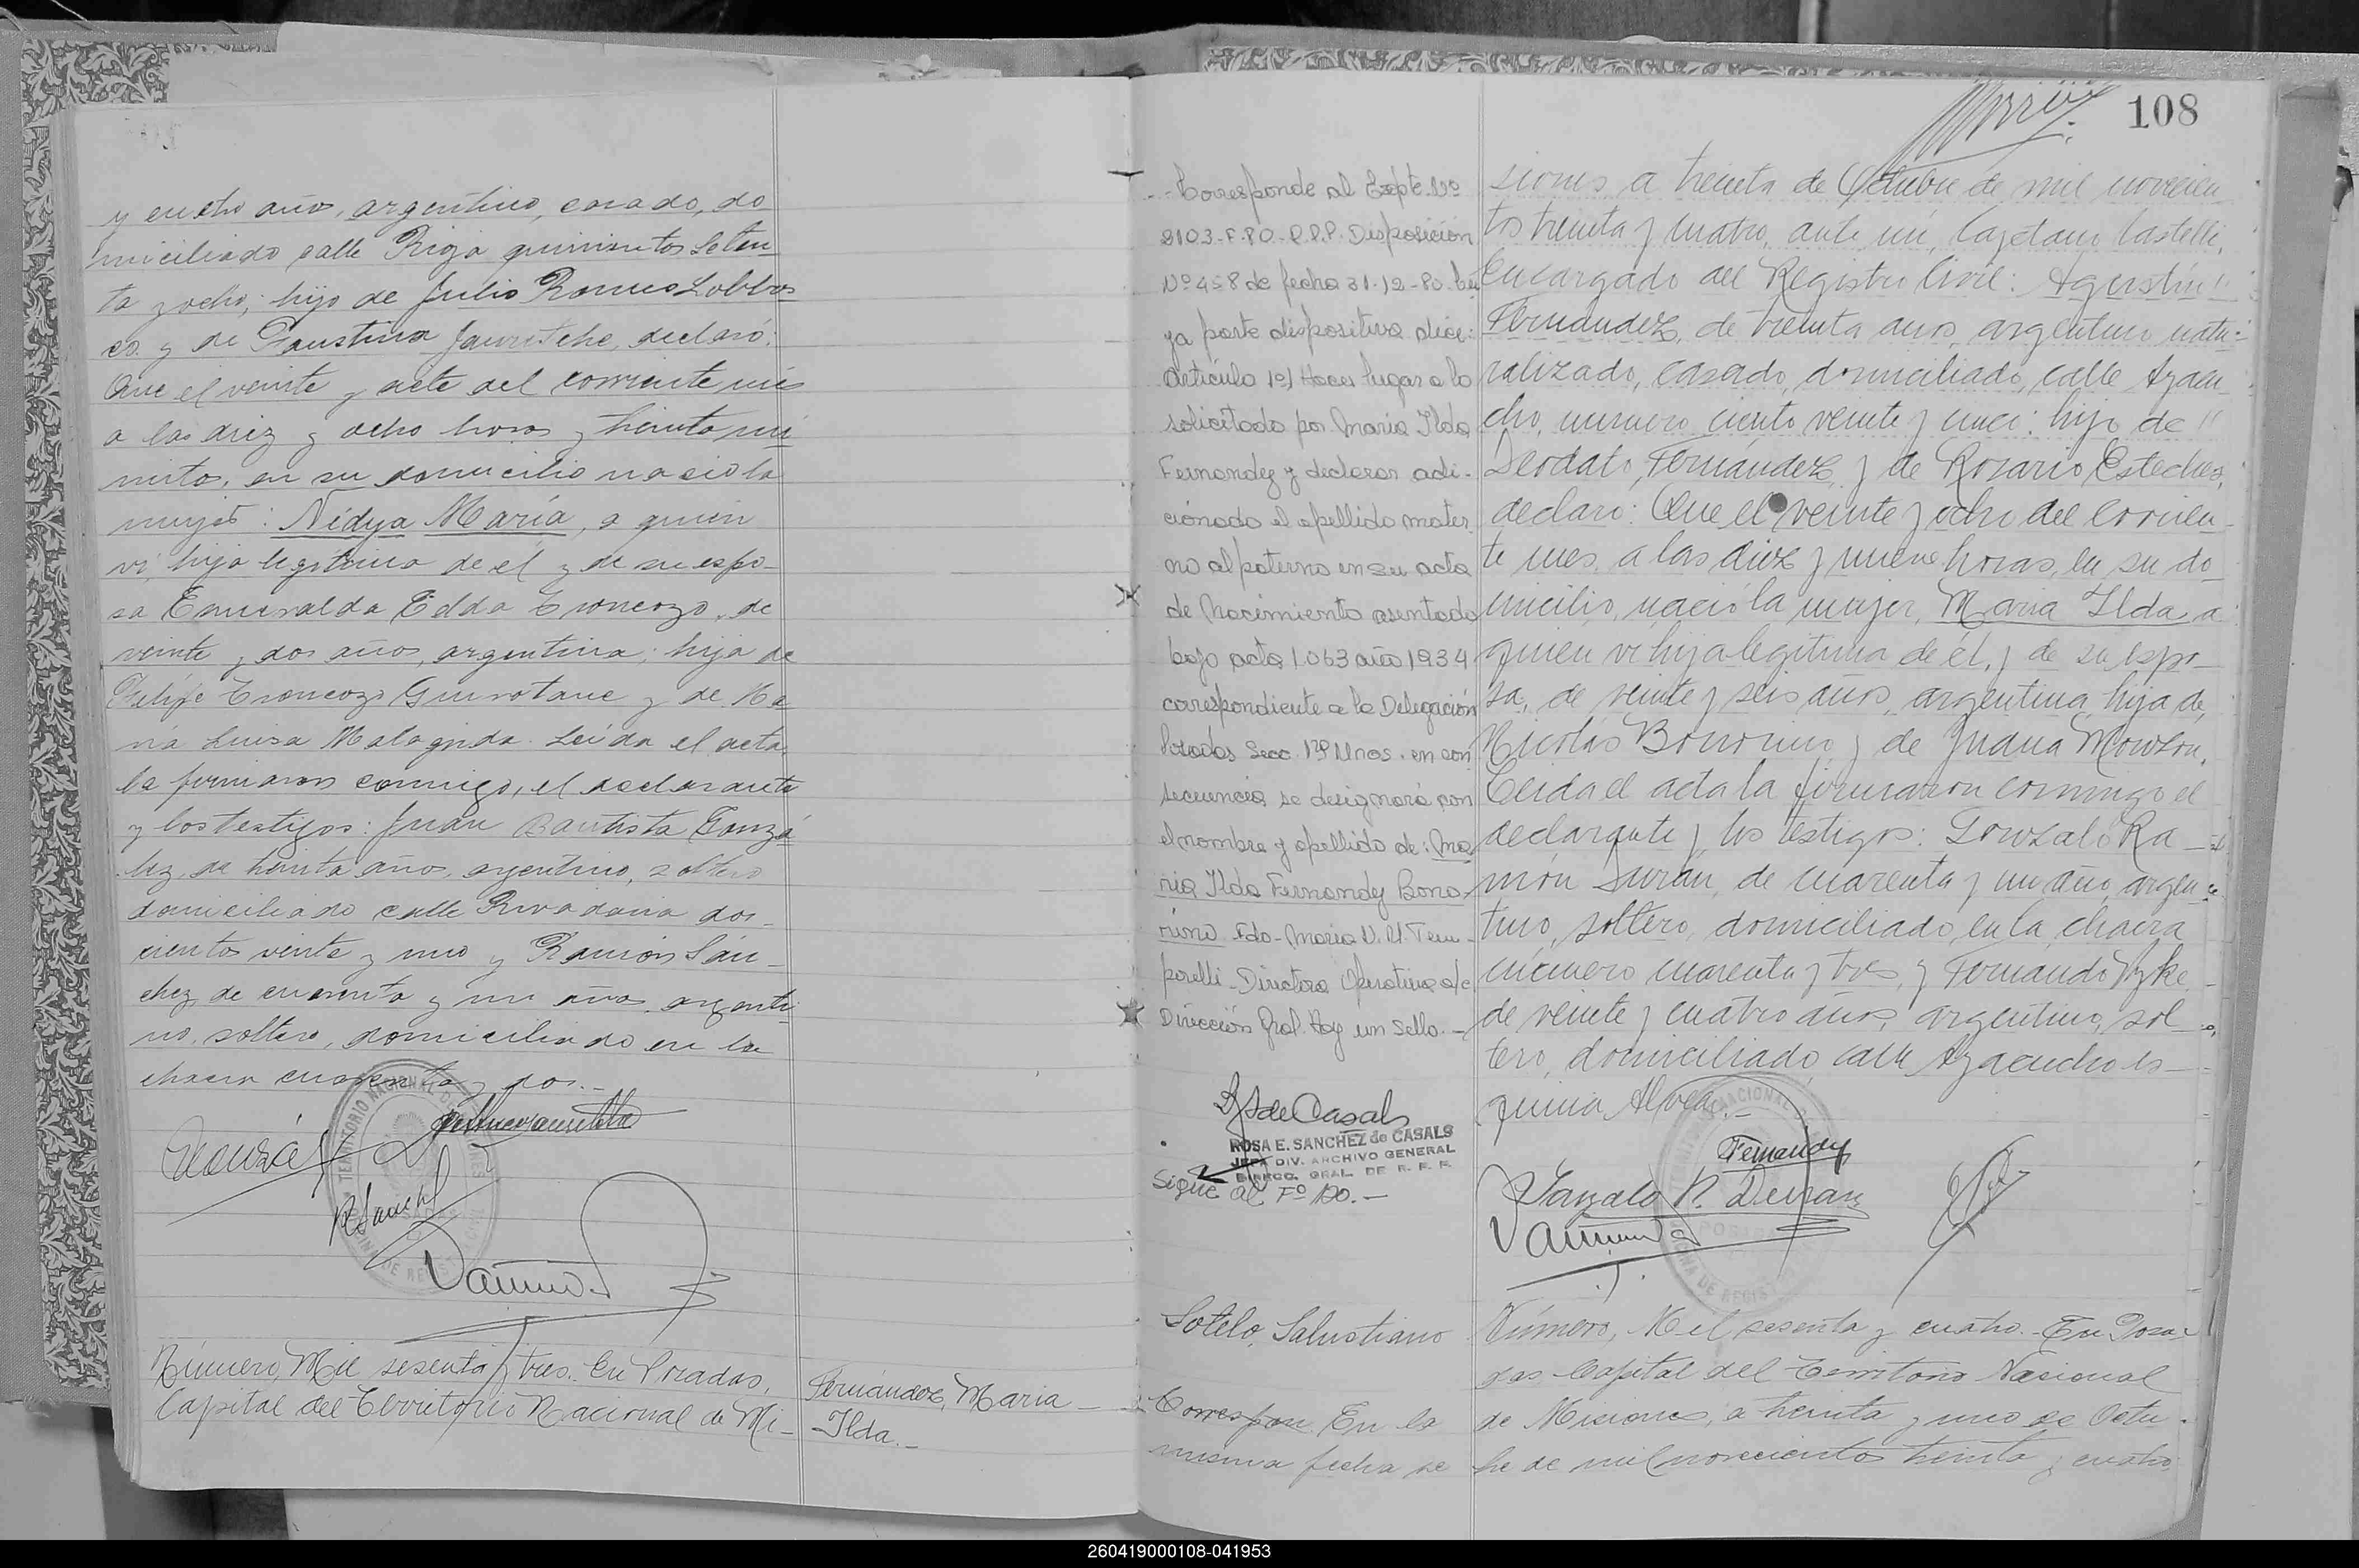 y cuatro años, argentino, casado, do
miciliado calle Rioja quinientos seten
ta y ocho; hijo de Julio Romus Lobbos
co. y de Faustina Jauretche, declaró:
Que el veinte y siete del corriente mes
a las diez y ocho horas y treinta mi
nutos, en su domicilio nació la
mujer: Nidya María, a quien
vi, hija legítima de el y de su espo-
sa Esmeralda Edda Troncozo, de
veinte y dos años, argentina; hija de
Felipe Troncozo Guirotane y de Ma
ria Luisa Malagrida. Leída el acta
la firmaron conmigo, el declarante
y los testigos: Juan Bautista Gonzá
lez, de treinta años, argentino, soltero
domiciliado calle Rivadavia dos-
cientos veinte y uno y Ramón Sán-
chez de cuarenta y un años, argenti-
no, soltero, domiciliado en la
chacra cuarenta y dos.-
R Sanchez
Número, Mil sesenta y tres. En Posadas,
Capital del Territorio Nacional de Mi-
Fernández, Maria
Ilda.-
108
-Corresponde al Expte. Nº
2103-F-80-R.P.P. Disposición
Nº 458 de fecha 31-12-80. Cu
ya parte dispositiva dice:
Artículo 1º) Hacer lugar a lo
solicitado por Maria Ilda
Fernandez y declarar adi-
cionado el apellido mater
no al paterno en su acta
de Nacimiento asentada
bajo acta 1.063 año 1934
correspondiente a la Delegación
Posadas Secc. 1ra Mnes. en con
secuencia se designará con
el nombre y apellido de: Ma
ria Ilda Fernandez Bono-
rino. Fdo- Maria V. U. Tem-
porelli-Directora Operativa a/c
Dirección Gral. Hay un sello.-
R S de Casals
ROSA E. SANCHEZ de CASALS
JEFA DIV. ARCHIVO GENERAL
DIRECC. GRAL. DE R. P. P.
Sigue al Fº 190.-
Sotelo, Salustiano
Correspon En la
misma fecha se
siones, a treinta de Octubre de mil novecien
tos treinta y cuatro, ante mi, Cayetano Castelli,
Encargado del Registro Civil: Agustín
Fernández, de treinta años, argentino natu-
ralizado, casado, domiciliado, calle Ayacu
cho, número ciento veinte y cinco: hijo de
Deodato, Fernández, y de Rosario Esteche,
declaró: Que el veinte y ocho del corrien-
te mes, a las diez y nueve horas, en su do-
micilio, nació la mujer, Maria Ilda a
quien vi hija legitima de él, y de su espo-
sa, de veinte y seis años, argentina, hija de
Nicolás Bonorino, y de Juana Mowson.
Leida el acta la firmaron conmigo el
declarante y los testigos: Gonzalo Ra-
món Durán, de cuarenta y un año, argen-
tino, soltero, domiciliado, en la chacra
número cuarenta y tres, y Fernando Vyke
de veinte y cuatro años, argentino, sol-
tero, domiciliado, calle Ayacucho es-
quina Alvear.-
Fernández
Gonzalo R. Duran
Número, Mil sesenta y cuatro. En Posa-
das Capital del Territorio Nacional
de Misiones, a treinta y uno de Octu-
bre de mil novecientos treinta y cuatro
260419000108-041953